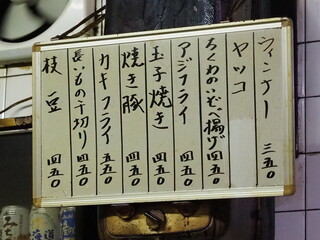 ウィンナー 三五〇
ヤッコ
ちくわのいそべ揚げ 四五〇
アジフライ 四五〇
玉子焼き 四五〇
焼き豚 四五〇
カキフライ 五五〇
長いもの千切り 四五〇
枝豆 四五〇